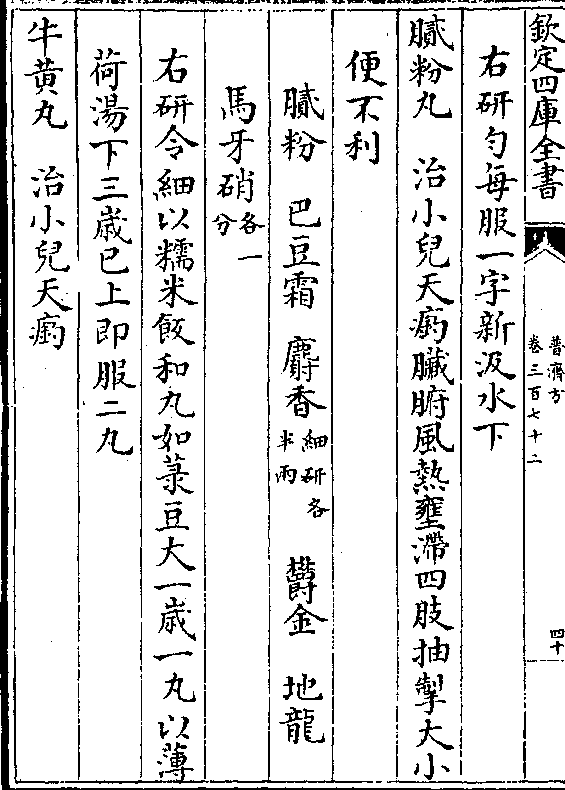 欽定四庫全書
普濟方
卷三百七十二
四十
右研勻每服一字新汲水下
膩粉丸　治小兒天𤺊臟腑風熱壅滯四肢抽掣大小
便不利
膩粉　巴豆霜　麝香細研各半兩　欝金　地龍
馬牙硝各一分
右研令細以糯米飯和丸如菉豆大一歲一丸以薄
荷湯下三歲已上即服二丸
牛黄丸　治小兒天𤺊